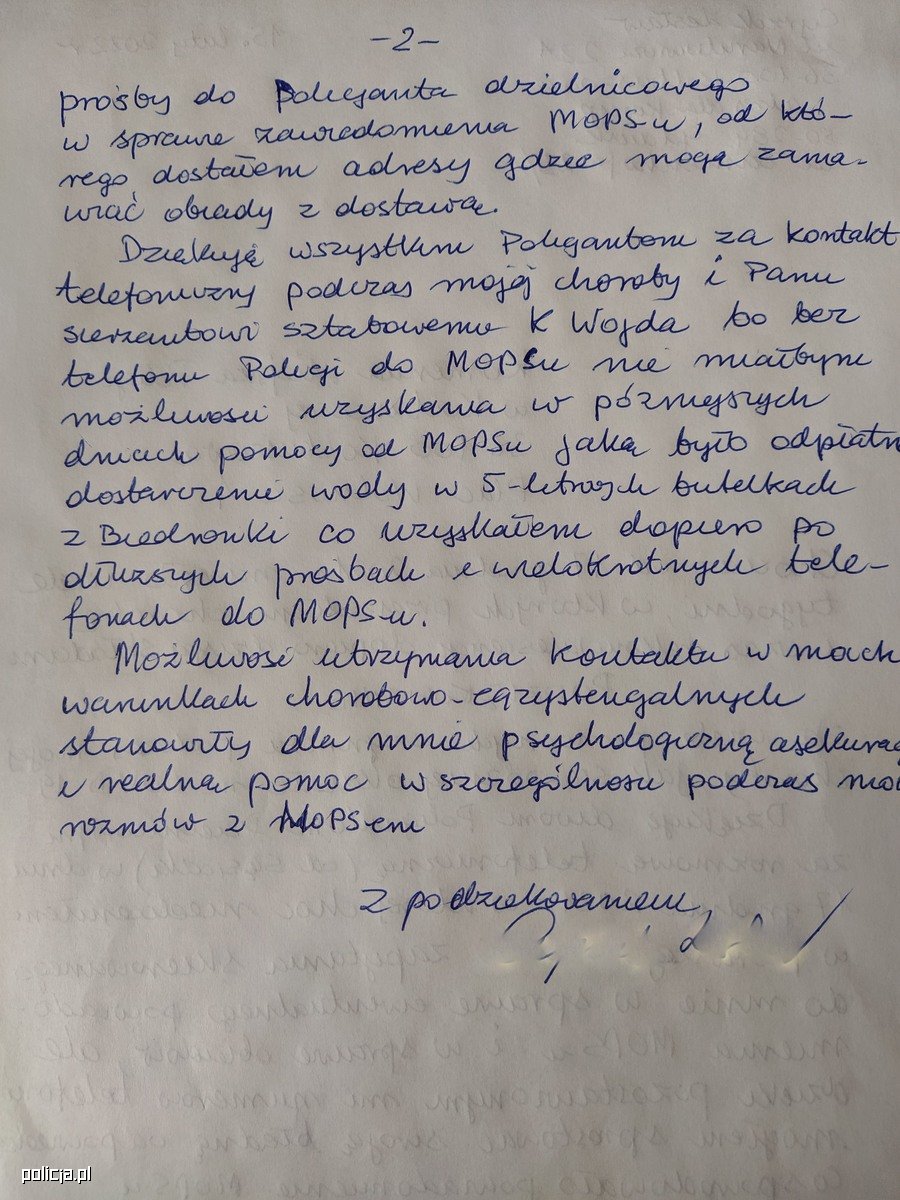 -2-
prośby do Policjanta dzielnicowego
w sprawie zawiadomienia MOPS-u, od któ-
rego dostałem adresy gdzie mogę zama-
wiać obiady z dostawą.
Dziękuję wszystkim Policjantom za kontakt
telefoniczny podczas mojej choroby i Panu
sierżantowi sztabowemu K Wojda bo bez
telefonu Policji do MOPSu nie miałbym
możliwości uzyskania w późniejszych
dniach pomocy od MOPSu jaką było odpłatn
dostarczenie wody w 5-litrowych butelkach
z Biedronki co uzyskałem dopiero po
dłuższych prośbach i wielokrotnych tele-
fonach do MOPS-u.
Możliwość utrzymania kontaktu w moich
warunkach chorobowo-egzystencjalnych
stanowiły dla mnie psychologiczną asekurac
i realną pomoc w szczególności podczas moi
rozmów z MOPS-em
Z podziękowaniem,
policja.pl